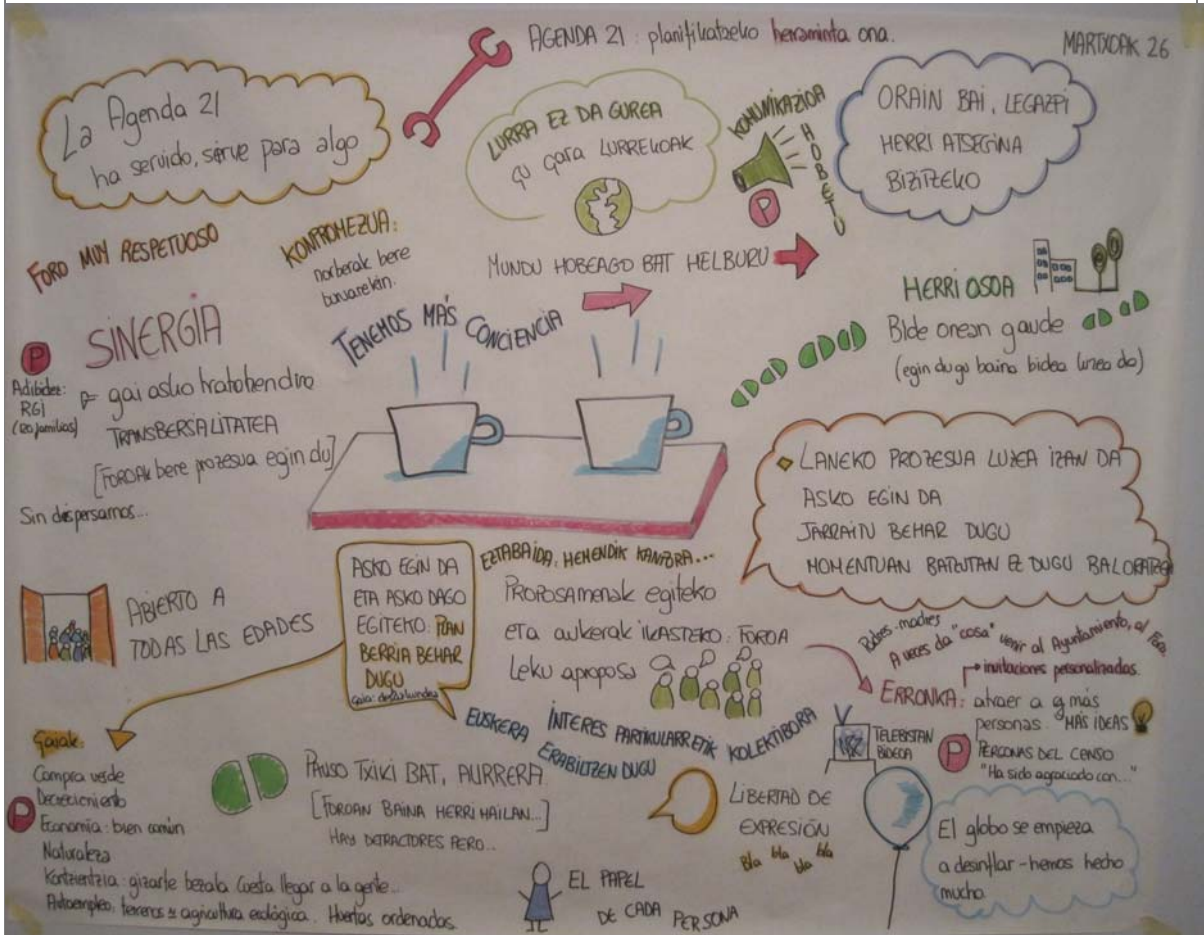 AGENDA 21: planifikatzeko herraminta ona.
MARTXOAK 26
La Agenda 21
ha servido, sirve para algo
LURRA EZ DA GUREA
GU GARA LURREKOAK
KOMUNIKAZIOA
HOBETU
P
ORAIN BAI, LEGAZPI
HERRI ATSEGINA
BIZITZEKO
FORO MUY RESPETUOSO
KONPROMEZUA:
norberak bere
buruarekin.
MUNDU HOBEAGO BAT HELBURU
TENEMOS MÁS CONCIENCIA
HERRI OSOA
Bide onean gaude
(egin dugu baina bidea luzea da)
P
SINERGIA
Adibidez:
RGI
(20 familias)
gai asko
TRANSBERSALITATEA
[FOROAK bere prozesua egin du]
Sin dispersarnos...
LANEKO PROZESUA LUZEA IZAN DA
ASKO EGIN DA
JARRAITU BEHAR DUGU
MOMENTUAN BATZUTAN EZ DUGU BALORATZEN
ABIERTO A
TODAS LAS EDADES
ASKO EGIN DA
ETA ASKO DAGO
EGITEKO: PLAN
BERRIA BEHAR
DUGU
EZTABAIDA: HEMENDIK KANPORA...
PROPOSAMENAK egiteko
eta aukerak IKASTEKO: FOROA
Leku aproposa
Padres-madres
A veces da "cosa" venir al Ayuntamiento, al Foro.
invitaciones personalizadas.
ERRONKA: atraer a q más
personas. MÁS IDEAS
P
PERSONAS DEL CENSO
"Ha sido agraciado con..."
EUSKERA ERABILTZEN DUGU
INTERES PARTIKULARRETIK KOLEKTIBORA
TELEBISTAN
BIDEOA
Gaiak:
Compra verde
Decrecimiento
P
Economía: bien común
Naturaleza
Kontzientzia: gizarte bezala Cuesta llegar a la gente...
Autoempleo: terrenos agricultura ecológica. Huertas ordenadas.
PAUSO TXIKI BAT, AURRERA.
[FOROAN BAINA HERRI MAILAN...]
HAY DETRACTORES PERO...
LIBERTAD DE
EXPRESIÓN
Bla bla bla bla
EL PAPEL
DE CADA PERSONA
El globo se empieza
a desinflar - hemos hecho
mucho.